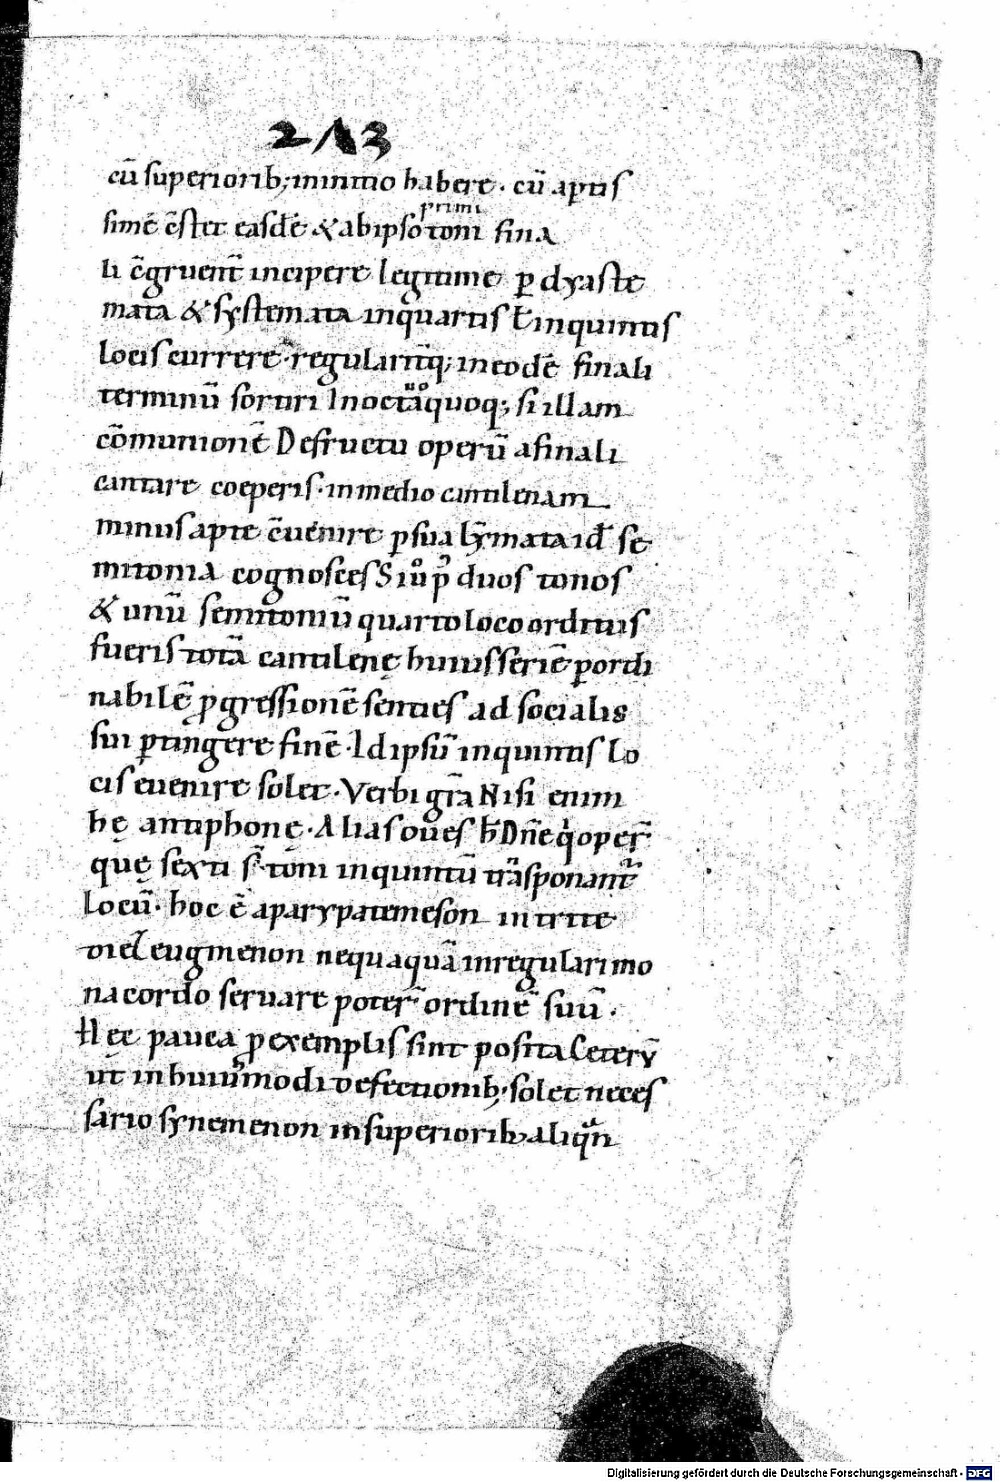 2 13
cū superiorib; minimo habere · cū aptis
simē c̄stet easdē & ab ipso toni fina
primi
li c̄gruent̄ incipere legitime ꝑ dyaste
mata & systemata in quartis ł in quintis
locis currere · regularit̄q; in eodē finali
terminū sortiri In octāuo quoq; si illam
cōmunionē De fructu operū a finali
cantare coeperis · in medio cantilenam
minus apte c̄uenire ꝑ sua lȳmata id ē se
mitonia cognosces Si ū p̄ duos tonos
& unū semitoniū quarto loco orditus
fueris totā cantilenę huius seriē ꝑ ordi
nabilē ꝓgressionē senties ad socialis
sui ꝑtingere finē · Id ipsū in quintis lo
cis euenire solet · Verbi gr̄a Nisi enim
hę antiphonę · Alias oues h̄ Dn̄e q̇ oper̄
quę sexti st̄ toni in quintū tn̄sponant̄
locū · hoc ē a parypatemeson in trite
diezeugmenon nequaquā in regulari mo
nacordo seruare poter̄ ordinē suū ·
Hęc pauca ꝓ exemplis sint posita Ceterū
ut in huiusmodi defectionib; solet neces
sario synemenon in superiorib; aliqn̄
Digitalisierung gefördert durch die Deutsche Forschungsgemeinschaft - DFG